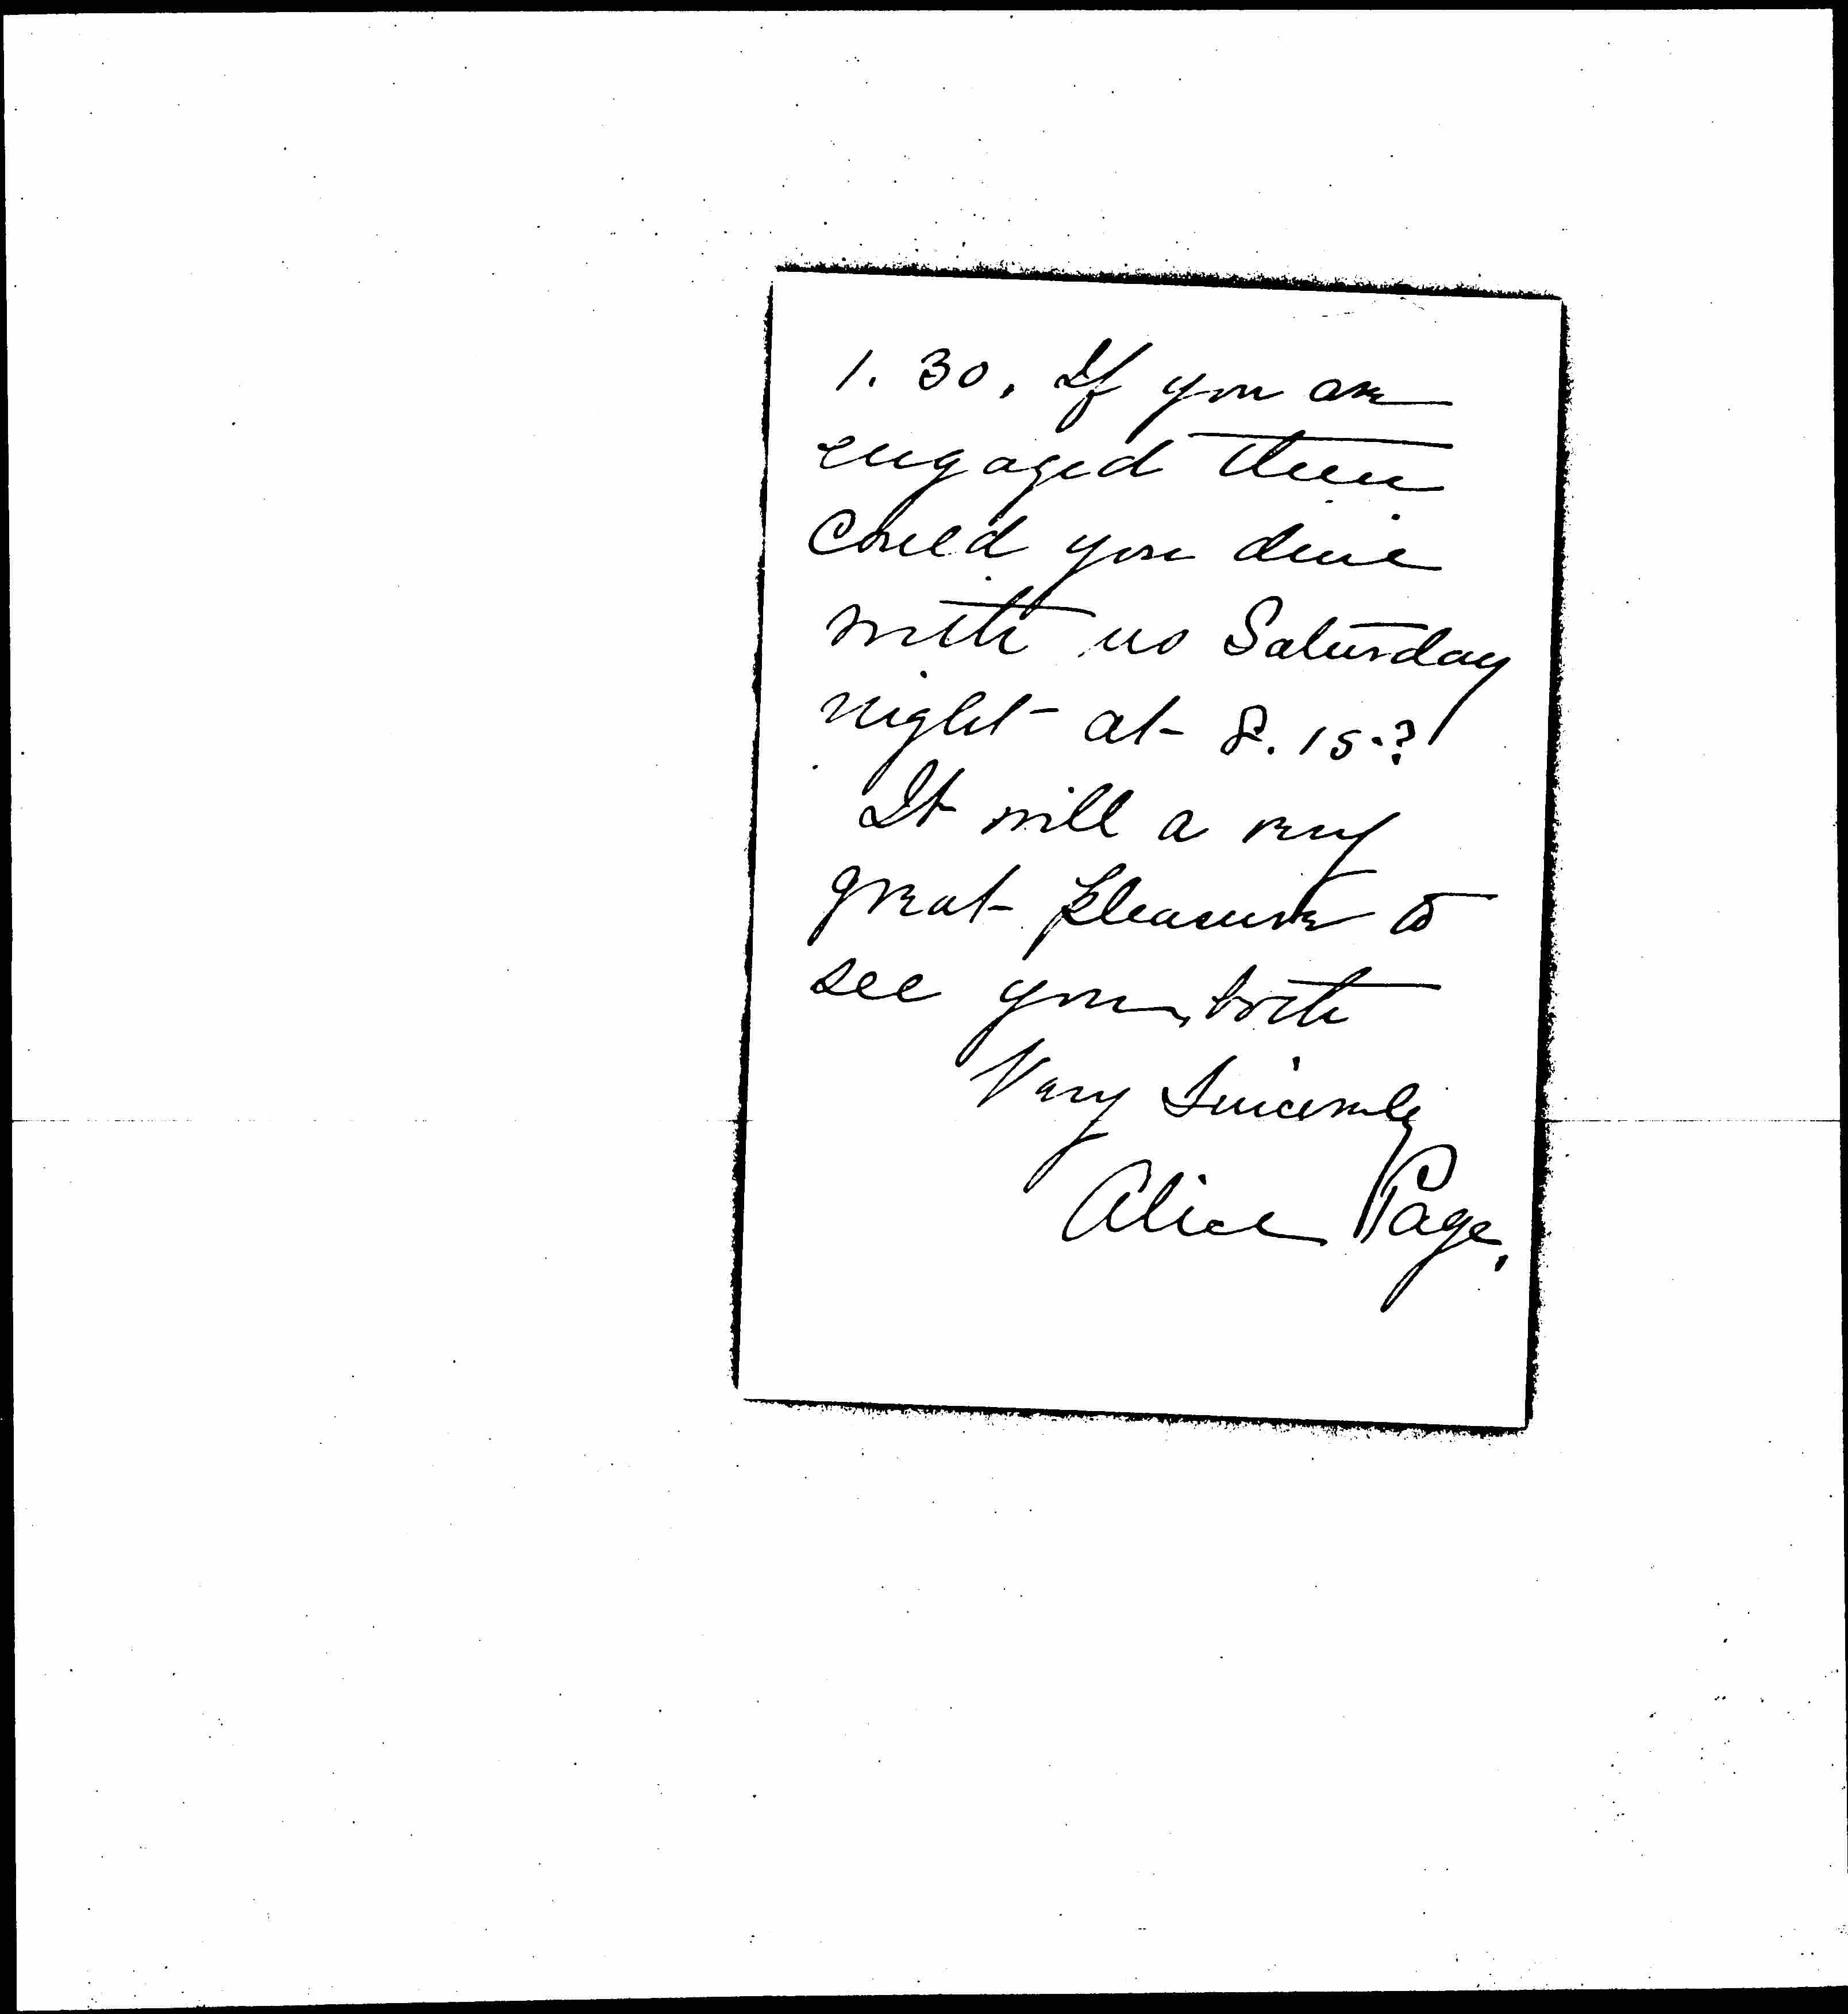 1.30. If you are
engaged then
Could you dine
with us Saturday
night at 8.15.?
It will a very
great pleasure to
see you, both
Very Sincerely
Alice Page.